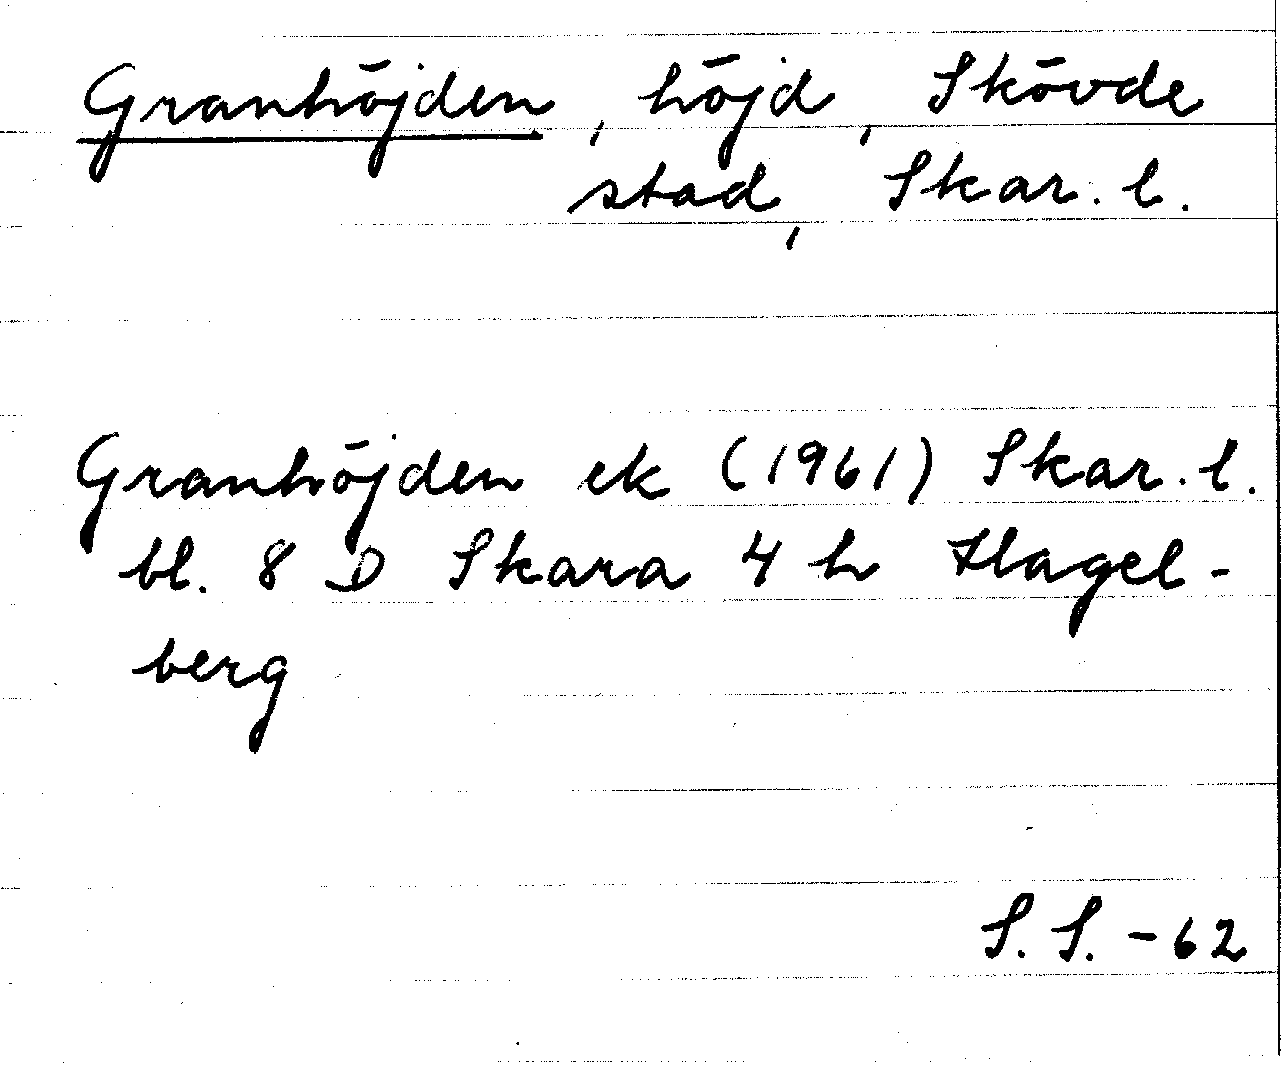 Granhöjden, höjd, Skövde
stad, Skar. l.
Granhöjden ek (1961) Skar. l.
bl. 8 D Skara 4 h Hagel-
berg
S. S. -62